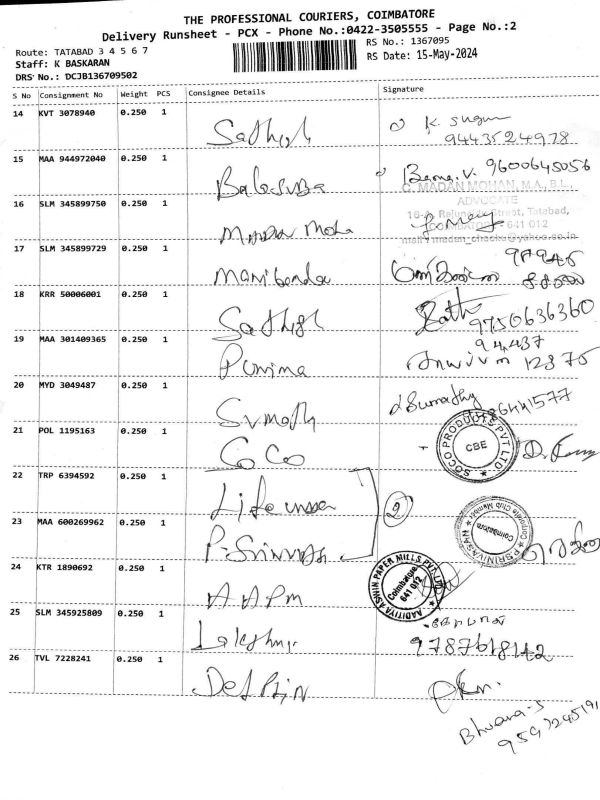 THE PROFESSIONAL COURIERS, COIMBATORE
Delivery Runsheet - PCX - Phone No.:0422-3505555 - Page No.:2
Route: TATABAD 3 4 5 6 7
RS No.: 1367095
Staff: K BASKARAN
RS Date: 15-May-2024
DRS No.: DCJB136709502
S No Consignment No Weight PCS Consignee Details Signature
14 KVT 3078940 0.250 1 Sathish K. Sugun
9443524978
15 MAA 944972040 0.250 1 Balasuba Bama.V. 9600645056
G. MADAN MOHAN, M.A., B.L.,
ADVOCATE
16 SLM 345899750 0.250 1 Madan Moha
Street, Tatabad,
COIMBATORE - 641 012
17 SLM 345899729 0.250 1 Manikanda மணிகண்டன்
18 KRR 50006001 0.250 1 Sathish 9750636360
19 MAA 301409365 0.250 1 Purnima 94437
12875
20 MYD 3049487 0.250 1 Sumath Sumathy
21 POL 1195163 0.250 1 CoCo
SOCO PRODUCTS PVT. LTD
CBE
22 TRP 6394592 0.250 1 2
23 MAA 600269962 0.250 1
P.SRINIVASAN
Corporate Club Member
Coimbatore
24 KTR 1890692 0.250 1 AAPM
AADITIYA ASWIN PAPER MILLS PVT. LTD
Coimbatore
641 012
25 SLM 345925809 0.250 1 Lakshmi கோபால்
9787618142
26 TVL 7228241 0.250 1